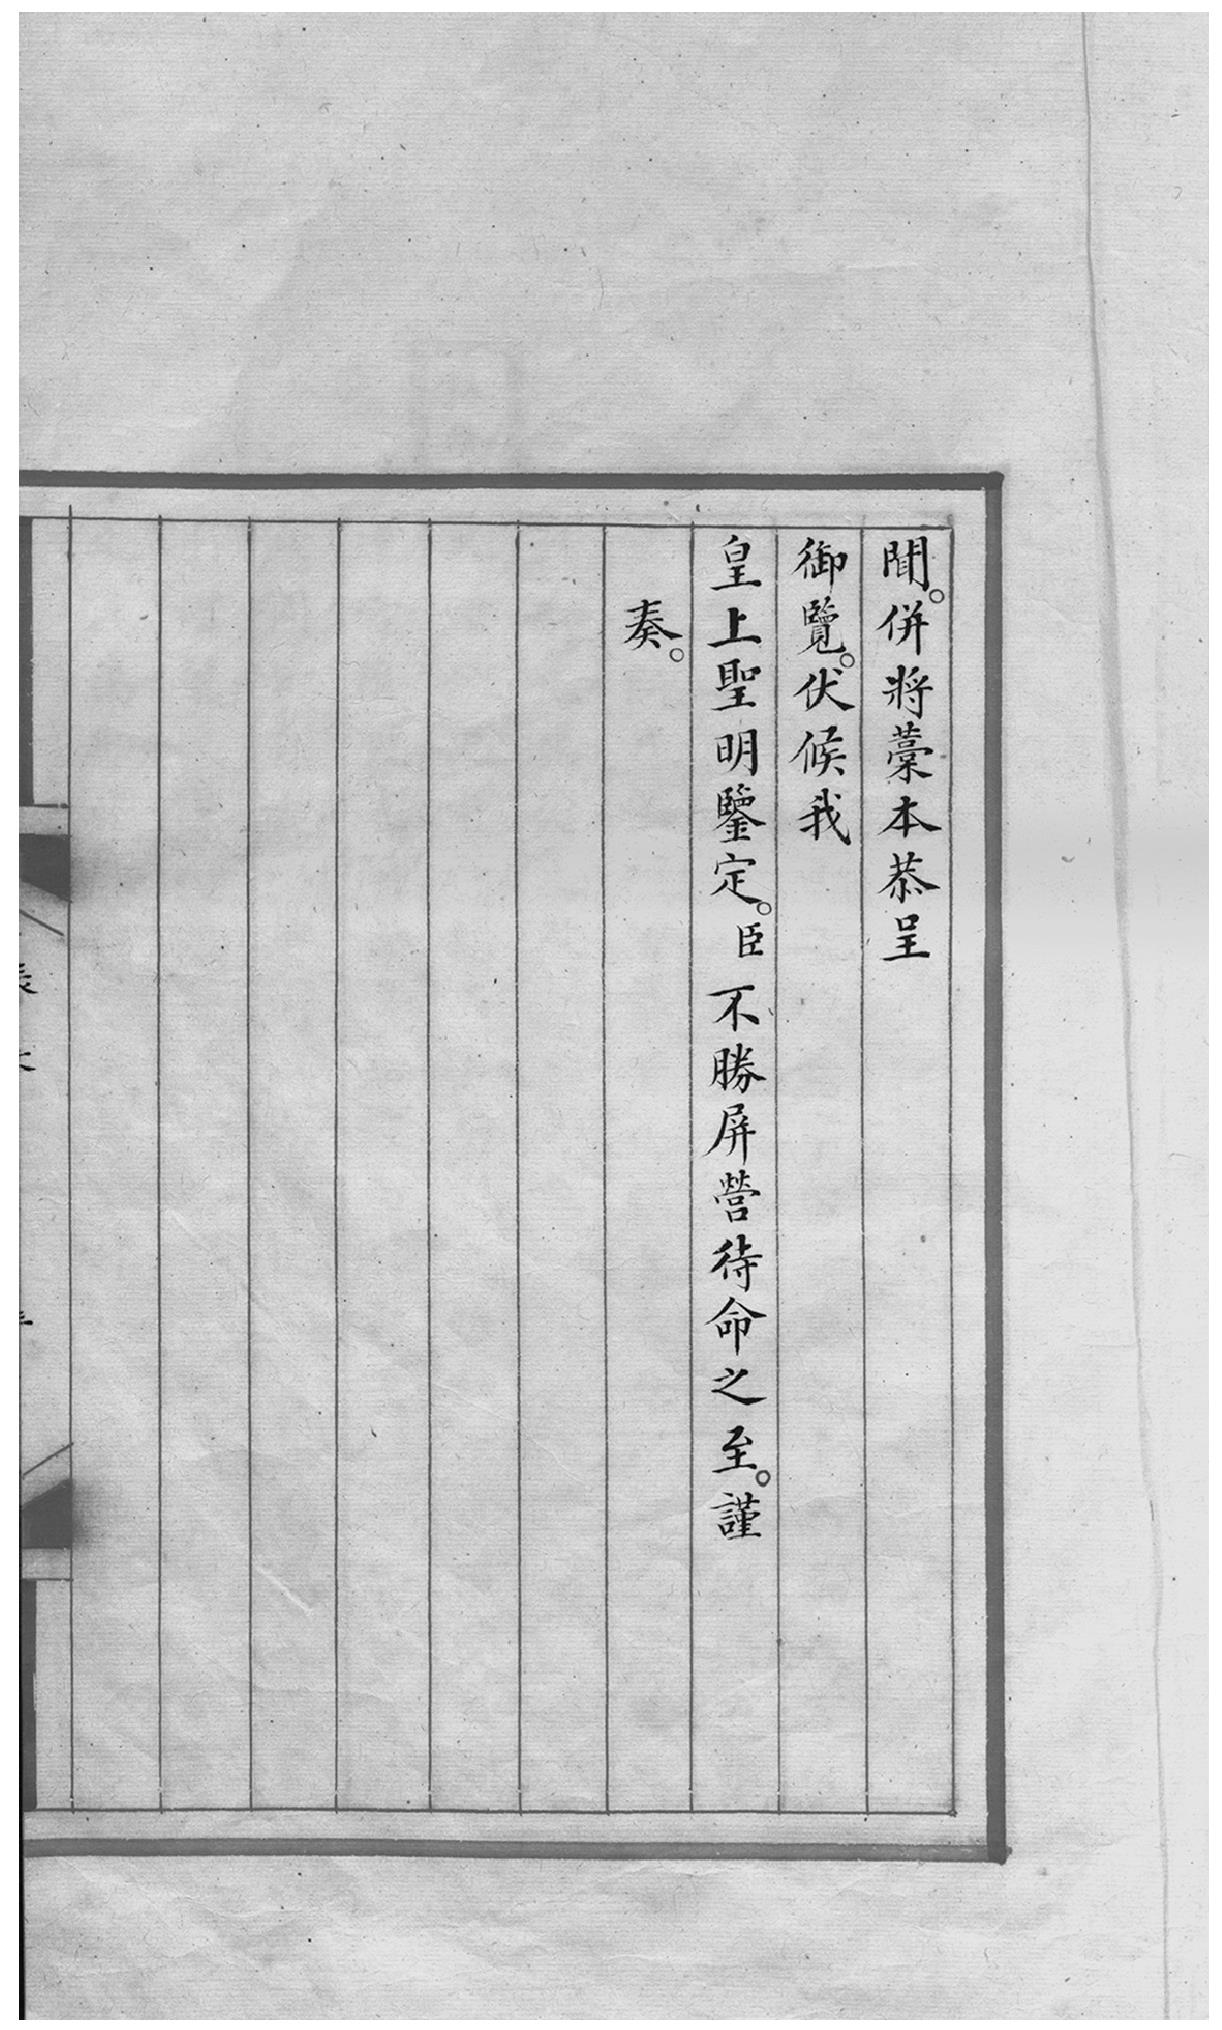 聞。併將藁本恭呈
御覽。伏候我
皇上聖明鑒定。臣不勝屏營待命之至。謹
奏。